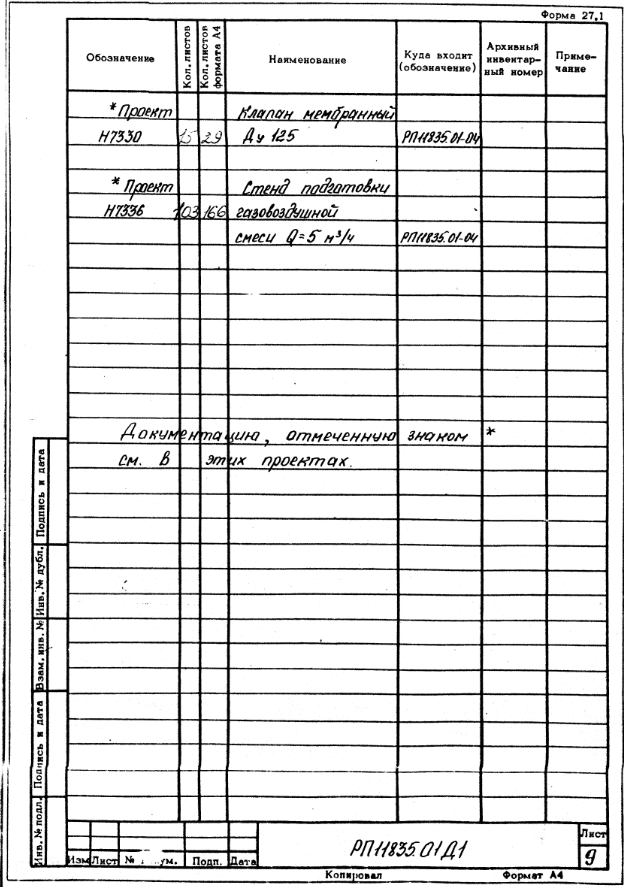 Форма 27,1
Обозначение
Кол. листов
Кол. листов формата А4
Наименование
Куда входит (обозначение)
Архивный инвентар-
ный номер
Приме-
чание
* Проект Клапан мембранный
Н7330 15 29 Ду 125 РП11835.01-04
* Проект Стенд подготовки
Н7336 103 166 газовоздушной
смеси Q=5 м³/ч РП11835.01-04
Документацию, отмеченную знаком *
см. в этих проектах.
Подпись и дата
Инв. № дубл.
Взам. инв. №
Подпись и дата
Инв. № подл.
РП11835.01Д1
Лист
9
Изм Лист № ум. Подп. Дата
Копировал Формат А4